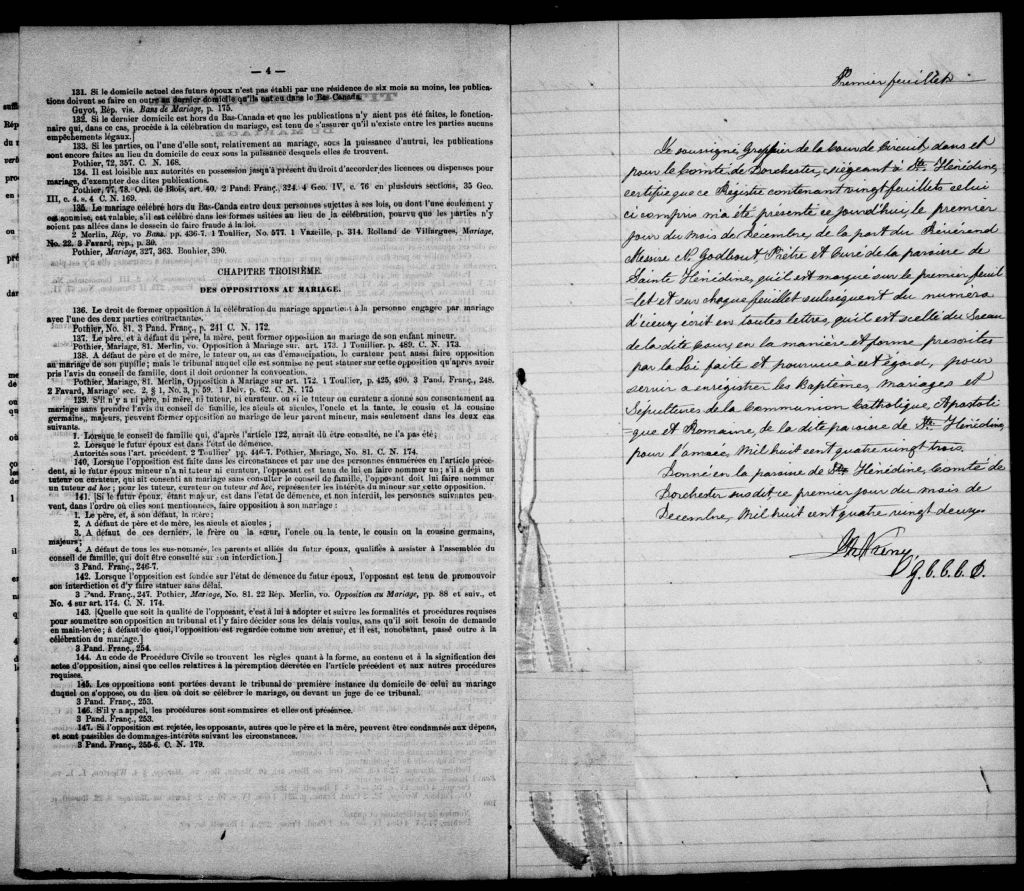 — 4 —
131. Si le domicile actuel des futurs époux n'est pas établi par une résidence de six mois au moins, les publica-
tions doivent se faire en outre au dernier domicile qu'ils ont eu dans le Bas-Canada.
Guyot, Rép. vis. Bans de Mariage, p. 175.
132. Si le dernier domicile est hors du Bas-Canada et que les publications n'y aient pas été faites, le fonction-
naire qui, dans ce cas, procède à la célébration du mariage, est tenu de s'assurer qu'il n'existe entre les parties aucuns
empêchements légaux.]
133. Si les parties, ou l'une d'elle sont, relativement au mariage, sous la puissance d'autrui, les publications
sont encore faites au lieu du domicile de ceux sous la puissance desquels elles se trouvent.
Pothier, 72, 357. C. N. 168.
134. Il est loisible aux autorités en possession jusqu'à présent du droit d'accorder des licences ou dispenses pour
mariage, d'exempter des dites publications.
Pothier, 77, 78. Ord. de Blois, art. 40. 2 Pand. Franç., 324. 4 Geo. IV, c. 76 en plusieurs sections, 35 Geo.
III, c. 4. s. 4 C. N. 169.
135. Le mariage célébré hors du Bas-Canda entre deux personnes sujettes à ses lois, ou dont l'une seulement y
est soumise, est valable, s'il est célébré dans les formes usitées au lieu de la célébration, pourvu que les parties n'y
soient pas allées dans le dessein de faire fraude à la loi.
2 Merlin, Rép, vo Bans. pp. 436-7. 1 Toullier, No. 577. 1 Vazeille, p. 314. Rolland de Villargues, Mariage,
No. 22. 3 Favard, rép., p. 30.
Pothier, Mariage, 327, 363. Bouhier, 390.
CHAPITRE TROISIÈME.
DES OPPOSITIONS AU MARIAGE.
136. Le droit de former opposition à la célébration du mariage appartient à la personne engagée par mariage
avec l'une des deux parties contractantes.
Pothier, No. 81. 3 Pand. Franç., p. 241 C. N. 172.
137. Le père, et à défaut du père, la mère, peut former opposition au mariage de son enfant mineur.
Pothier, Mariage, 81. Merlin, vo. Opposition à Mariage sur. art. 173. 1 Toullier, p. 489. C. N. 173.
138. A défaut de père et de mère, le tuteur ou, au cas d'émancipation, le curateur peut aussi faire opposition
au mariage de son pupille; mais le tribunal auquel elle est soumise ne peut statuer sur cette opposition qu'après avoir
pris l'avis du conseil de famille, dont il doit ordonner la convocation.
Pothier, Mariage, 81. Merlin, Opposition à Mariage sur art. 172. 1 Toullier, p. 425, 490. 3 Pand. Franç., 248.
2 Favard, Mariage sec. 2, § 1, No. 3, p. 59. 1 Delv., p. 62. C. N. 175
139. S'il n'y a ni père, ni mère, ni tuteur, ni curateur, ou si le tuteur ou curateur a donné son consentement au
mariage sans prendre l'avis du conseil de famille, les aïeuls et aïeules, l'oncle et la tante, le cousin et la cousine
germains, majeurs, peuvent former opposition au mariage de leur parent mineur, mais seulement dans les deux cas
suivants.
1. Lorsque le conseil de famille qui, d'après l'article 122, aurait dû être consulté, ne l'a pas été;
2. Lorsque le futur époux est dans l'état de démence.
Autorités sous l'art. précédent. 2 Toullier pp. 446-7. Pothier, Mariage, No. 81. C. N. 174.
140. Lorsque l'opposition est faite dans les circonstances et par une des personnes énumérées en l'article précé-
dent, si le futur époux mineur n'a ni tuteur ni curateur, l'opposant est tenu de lui en faire nommer un; s'il a déjà un
tuteur ou curateur, qui ait consenti au mariage sans consulter le conseil de famille, l'opposant doit lui faire nommer
un tuteur ad hoc; pour les tuteur, curateur ou tuteur ad hoc, représenter les intérêts du mineur sur cette opposition.
141. [Si le futur époux, étant majeur, est dans l'état de démence, et non interdit, les personnes suivantes peu-
vent, dans l'ordre où elles sont mentionnées, faire opposition à son mariage:
1. Le père, et, à son défaut, la mère;
2. A défaut de père et de mère, les aïeuls et aïeules;
3. A défaut de ces derniers, le frère ou la sœur, l'oncle ou la tente, le cousin ou la cousine germains,
majeurs;
4. A défaut de tous les sus-nommés, les parents et alliés du futur époux, qualifiés à assister à l'assemblée du
conseil de famille, qui doit être consulté sur son interdiction.]
3 Pand. Franç., 246-7.
142. Lorsque l'opposition est fondée sur l'état de démence du futur époux, l'opposant est tenu de promouvoir
son interdiction et d'y faire statuer sans délai.
3 Pand. Franç., 247. Pothier, Mariage, No. 81. 22 Rép. Merlin, vo. Opposition au Mariage, pp. 88 et suiv., et
No. 4 sur art. 174. C. N. 174.
143. [Quelle que soit la qualité de l'opposant, c'est à lui à adopter et suivre les formalités et procédures requises
pour soumettre son opposition au tribunal et l'y faire décider sous les délais voulus, sans qu'il soit besoin de demande
en main-levée; à défaut de quoi, l'opposition est regardée comme non avenue, et il est, nonobstant, passé outre à la
célébration du mariage.]
3 Pand. Franç., 254.
144. Au code de Procédure Civile se trouvent les règles quant à la forme, au contenu et à la signification des
actes d'opposition, ainsi que celles relatives à la péremption décrétée en l'article précédent et aux autres procédures
requises.
145. Les oppositions sont portées devant le tribunal de première instance du domicile de celui au mariage
duquel on s'oppose, ou du lieu où doit se célébrer le mariage, ou devant un juge de ce tribunal.
3 Pand. Franç., 253.
146. S'il y a appel, les procédures sont sommaires et elles ont préséance.
3 Pand. Franç., 253.
147. Si l'opposition est rejetée, les opposants, autres que le père et la mère, peuvent être condamnés aux dépens,
et sont passibles de dommages-intérêts suivant les circonstances.
3 Pand. Franç., 255-6. C. N. 179.
Premier feuillet
Je soussigné Greffier de la Cour de Circuit, dans et
pour le Comté de Dorchester, siégeant à Ste Hénédine,
certifie que ce Régistre contenant vingt feuillets celui
ci compris m'a été presenté ce jourd'hui, le premier
jour du mois de Décembre, de la part du Révérend
Messire N. Godbout, Prêtre et Curé de la paroisse de
Sainte Hénédine, qu'il est marqué sur le premier feuil
=let et sur chaque feuillet subséquent du numéro
d'iceux, écrit en toutes lettres, qu'il est scellé du Sceau
de la dite Cour, en la manière et forme prescrites
par la Loi faite et pourvue à cet égard, pour
servir à enrégistrer les Baptèmes, Mariages et
Sépultures de la Communion Catholique, Apostoli
=que et Romaine, de la dite paroisse de Ste Hénédine,
pour l'année, Mil huit cent quatre vingt trois.
Donné en la paroisse de Ste Hénédine, Comté de
Dorchester susdit ce premier jour du mois de
Decembre, Mil huit cent quatre vingt deux.
G. C. C. C. D.